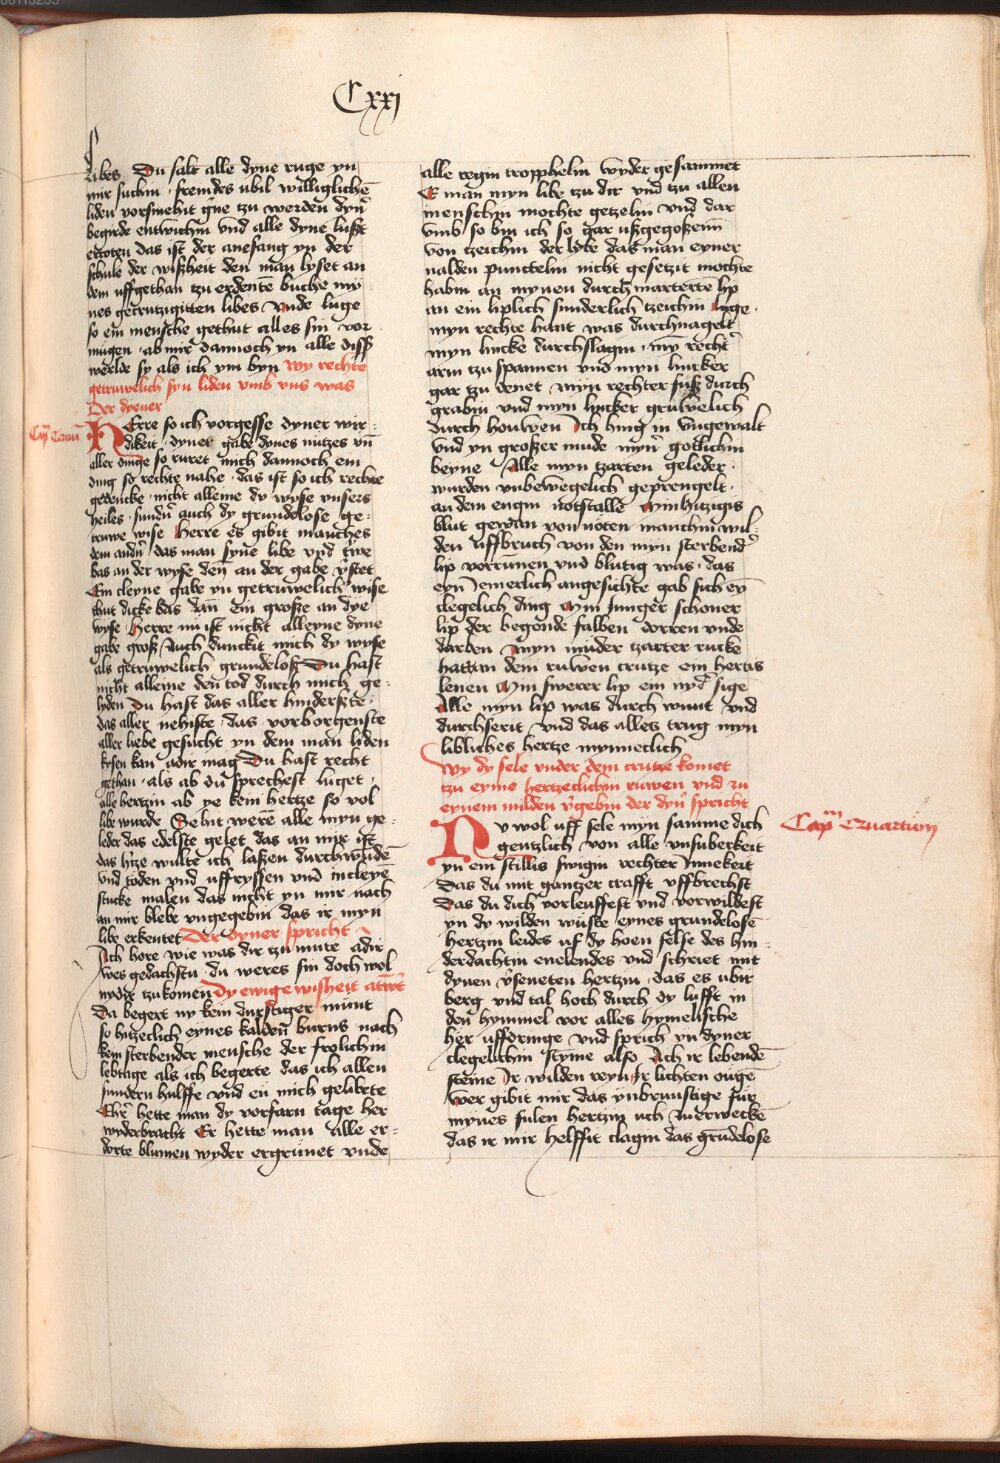 Cxxj
libes Du salt alle dyne ruge yn
mir suchin · fremdes ubil williglichē
liden vorsmehit gͤne tzu werden dyn̄
begirde entwichin vnd alle dyne lußt
ertoten das ist der anefang yn der
schule der wißheit den man lyset an
dem uffgethan tzu erdentē buche my
nes gecrutzigitten libes Vnde luge
so ein mensche gethut alles sin vor
mugen · ab mir dannoch yn alle diß
werlde sy als ich ym byn wy rechte
getruwelich syn liden vmb vns was
Der dyener
Cap̄ Terciū
Herre so ich vorgesse dyner wir
dikeit · dyner gabe dynes nutzes vn̄
aller dinge so ruret mich dannoch ein
ding so rechte nahe · das ist so ich rechte
gedencke · nicht alleine dy wyse vnsers
heiles · sundn̄ auch dy grundelose ge
truwe wise Herre es gibit manches
dem andn̄ das man syne libe vnd truwe
bas an der wyse den an der gabe ystet
Ein cleyne gabe yn getruwelich wise
thut dicke bas dan̄ ein große an dye
wyse · Herre nu ist nicht alleyne dyne
gabe groß Auch dunckit mich dy wyse
als getruwelich grundeloß Du hast
nicht alleine den tod durch mich ge
liden Du hast das aller hinderste ·
das aller nehiste · das vorborgenste
aller liebe gesucht yn dem man liden
kysen kan adir mag Du hast recht
gethan · als ab du sprechest luget ·
alle hertzin ab ye kein hertze so vol
libe wurde Sehit were alle myn ge
leder das edelste gelet das an mir ist
das h̄tze wulte ich laßen durchwūdē
vnd toden vnd uffryssen vnd in cleyē
stucke malen das nicht yn mir nach
an mir blebe vngegebin das ir myn
libe erkentet Der dyner spricht
Ich hore wie was dir tzu mute adir
wes gedachstu du weres sin doch wol
wydir tzukomen Dy ewige wisheit ātwt
Da begert ny kein durstiger munt
so hitzeclich eynes kalden burns nach
kein sterbender mensche der frolichin
lebtage als ich begerte das ich allen
sundern hulffe vnd en mich gelibete
Ehr̄ hette man dy vorfarn tage her
wyderbracht Er hette man Alle er
dorte blumen wyder ergrunet vnde
alle regin tropphelin wyder gesammet
E man myn libe tzu dir vnd tzu allen
menschin mochte getzelin vnd dar
vmb so bin ich so gar ußgegoßenn
von tzeichin der libe das man eyner
nalden punctelin nicht gesetzit mochte
habin an mynen durch marterte lip
an ein liplich sunderlich tzeichin luge ·
myn rechte hant was durchnagelt
myn lincke durchslagin · my recht̄
arm tzu spannen vnd myn lincker
gar tzu denet myn rechter fuß durch
grabin vnd myn lyncker gruwelich
durch houwen Ich hing in vngewalt
vnd yn großer mude myn̄ gotlichin
beyne Alle myn tzarten geleder ·
wurden vnbewegelich geprengelt ·
an dem engin notstalle Myn hitzigis
blut gewan von noten manchin wil
den uffbruch von den myn sterbend̄
lip vorrunnen vnd blutig was · das
eyn Jemerlich angesichte gab sich ey
clegelich ding Myn Junger schoner
lip der begonde falben dorren vnde
darben Myn muder tzarter rucke
hattin dem ruwen crutze ein hertis
lenen Myn swerer lip ein nyd̄ sige
Alle myn lip was durch wunt vnd
durchserit vnd das alles trug myn
libliches hertze mynneclich
Wy dy sele vnder dem crutze komet
tzu eyme hertzeclichin ruwen vnd zu
eynem milden ūgebin der dyn̄ spricht
Cap̄m Quartum
Nu wol uff sele myn samme dich
gentzlich von alle vnsuberkeit
yn ein stillis swigin rechter Innekeit
Das du mit gantzer crafft vffbrechst
Das du dich vorleuffest vnd vorwildest
yn dy wilden wuste eynes grundelosē
hertzin leides uf dy hoen felse des hin
derdachtin enelendes vnd schriet mit
dynen ūseneten hertzin · das es ubir
berg vnd tal hoch durch dy lufft in
den hymmel vor alles hymelische
her uffdringe vnd sprich yn dyner
clegelichin styme also Ach ir lebendē
steine Ir wilden reyn Ir lichten ougē
Wer gibit mir das ynbrunstige fur
mynes fulen hertzin uch zuerweckē
das ir mir helffit clagin das grūdelose